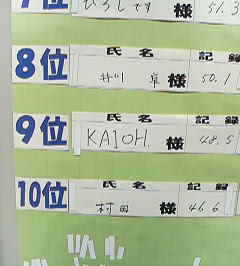 7位 ひろしです 様 51.3
氏名 記録
8位 井川 卓 様 50.1
氏名 記録
9位 KAIOH. 様 48.5
氏名 記録
10位 村田 様 46.6